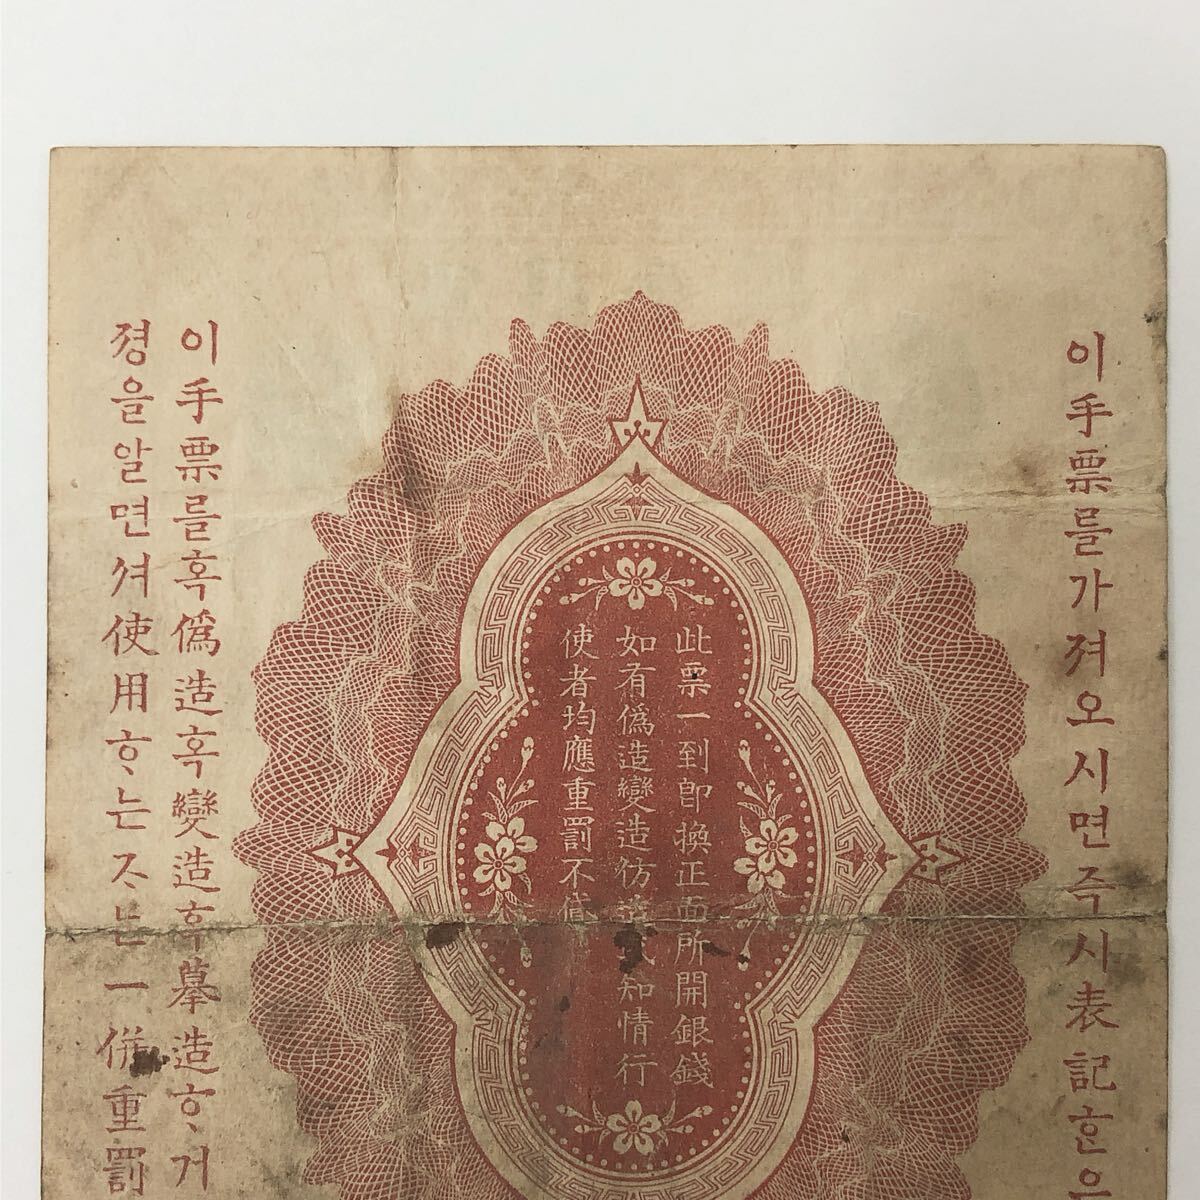 이手票를가져오시면즉시表記ᄒᆞᆫ은
此票一到卽換正面所開銀錢
如有僞造變造仿造或知情行
使者均應重罰不貸
이手票를혹僞造혹變造혹摹造ᄒᆞ거
졍을알면셔使用ᄒᆞ는ᄌᆞ는一併重罰